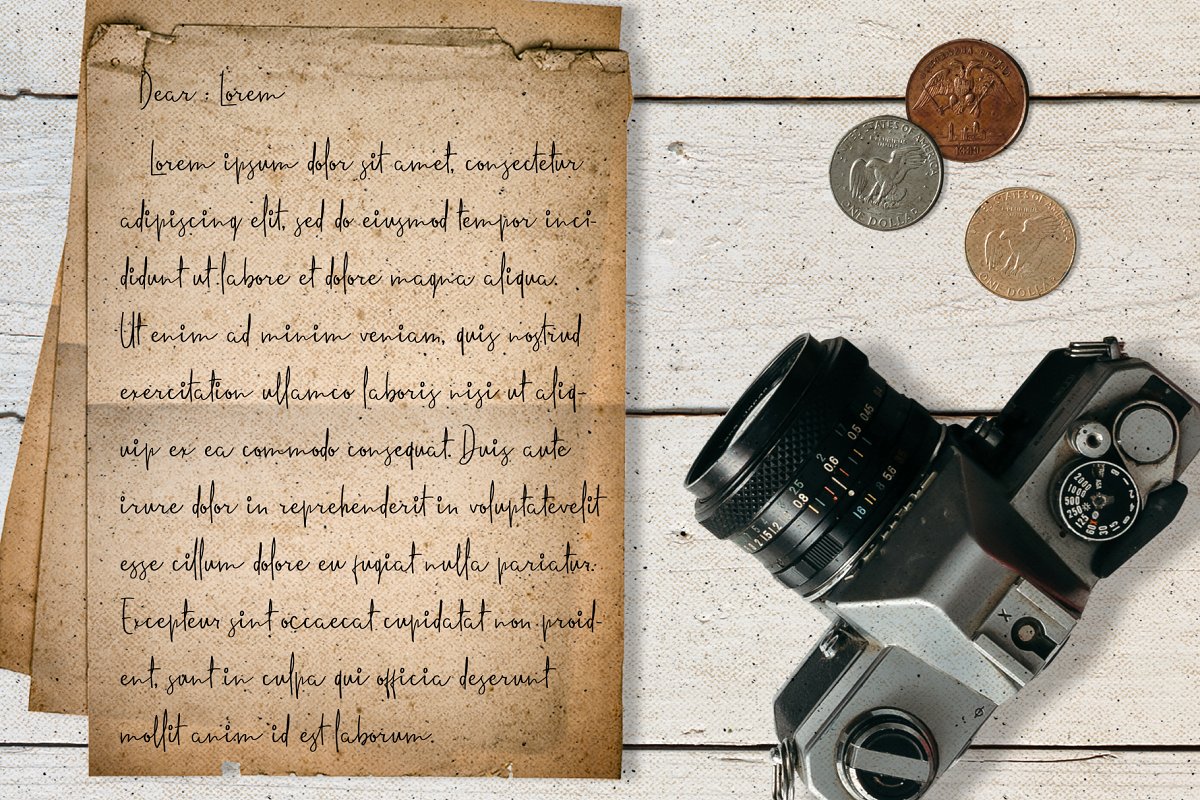 Dear : Lorem
Lorem ipsum dolor sit amet, consectetur
adipiscing elit, sed do eiusmod tempor inci-
didunt ut labore et dolore magna aliqua.
Ut enim ad minim veniam, quis nostrud
exercitation ullamco laboris nisi ut aliq-
uip ex ea commodo consequat. Duis aute
irure dolor in reprehenderit in voluptatevelit
esse cillum dolore eu fugiat nulla pariatur.
Excepteur sint occaecat cupidatat non proid-
ent, sunt in culpa qui officia deserunt
mollit anim id est laborum.
UNITED STATES OF AMERICA
ONE DOLLAR
UNITED STATES OF AMERICA
ONE DOLLAR
2000
1000
500
250
125
60
30
15
8
4
2
X